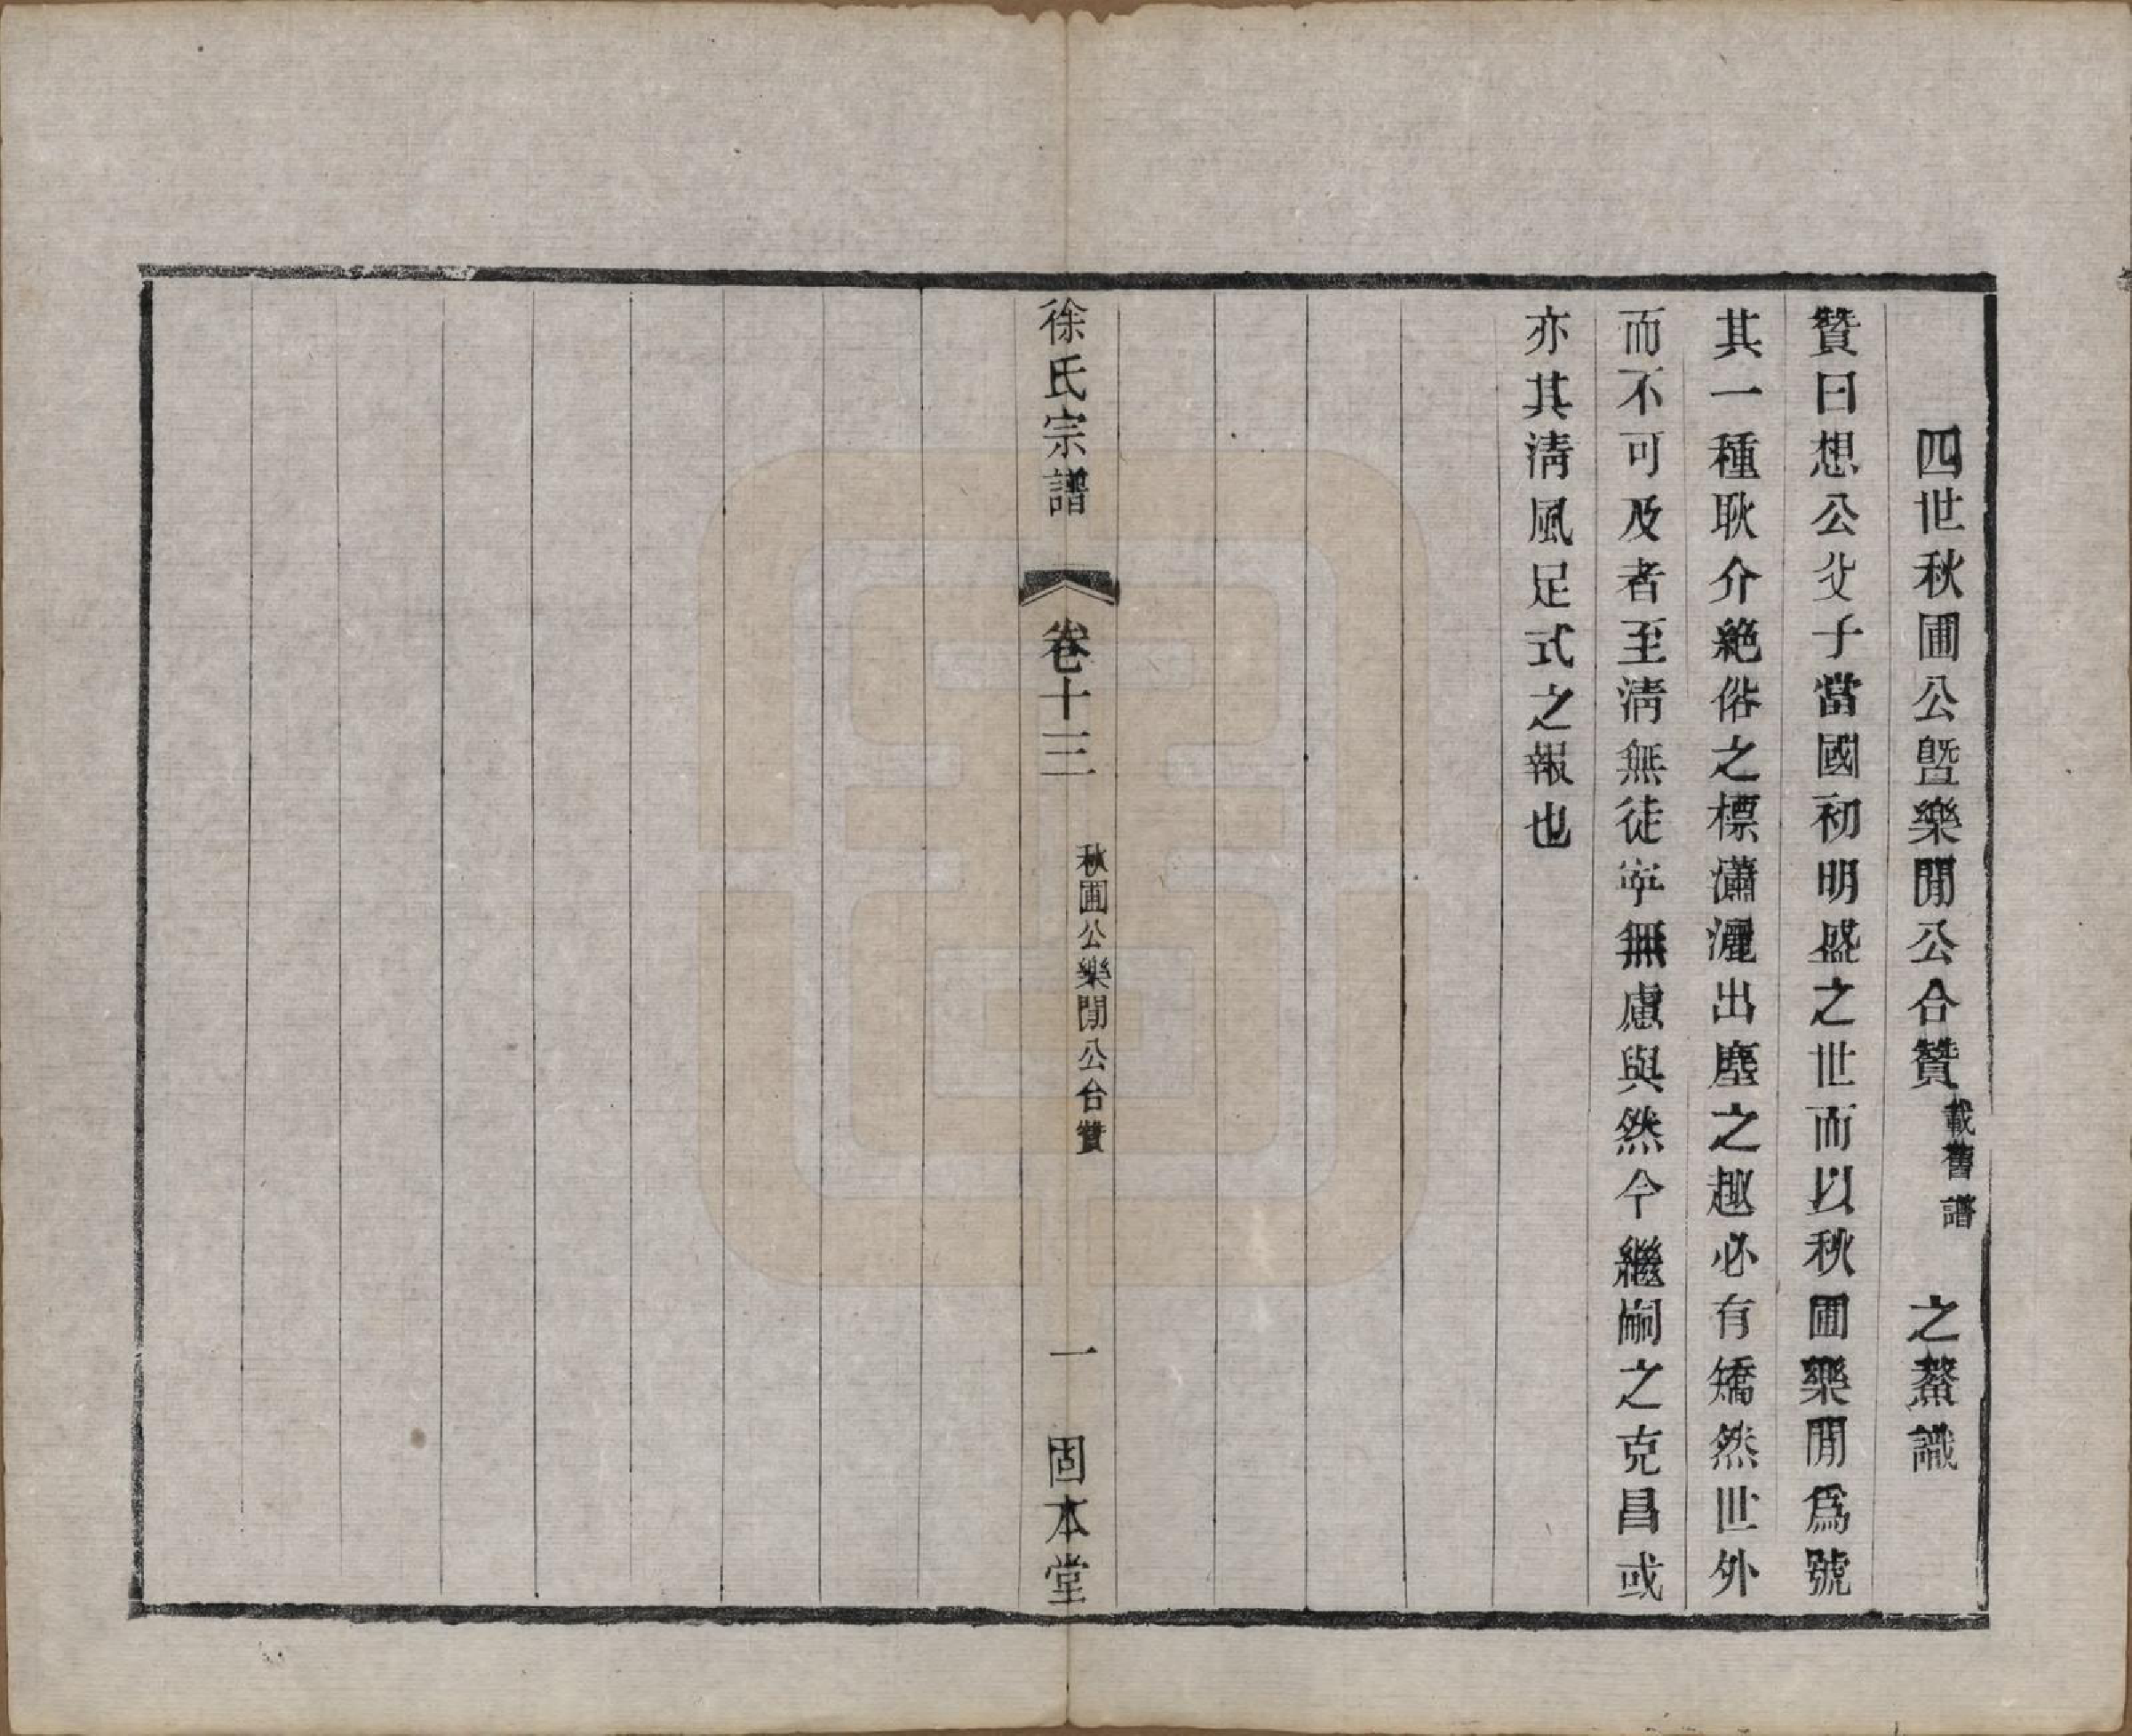 四世秋圃公暨樂閒公合贊載舊譜　之鰲識
贊曰想公父子當國初明盛之世而以秋圃樂閒爲號
其一種耿介絶俗之標瀟灑出塵之趣必有矯然世外
而不可及者至淸無徒寕無慮與然今繼嗣之克昌或
亦其淸風足式之報也
徐氏宗譜　卷十三　秋圃公樂閒公合贊　一　固本堂